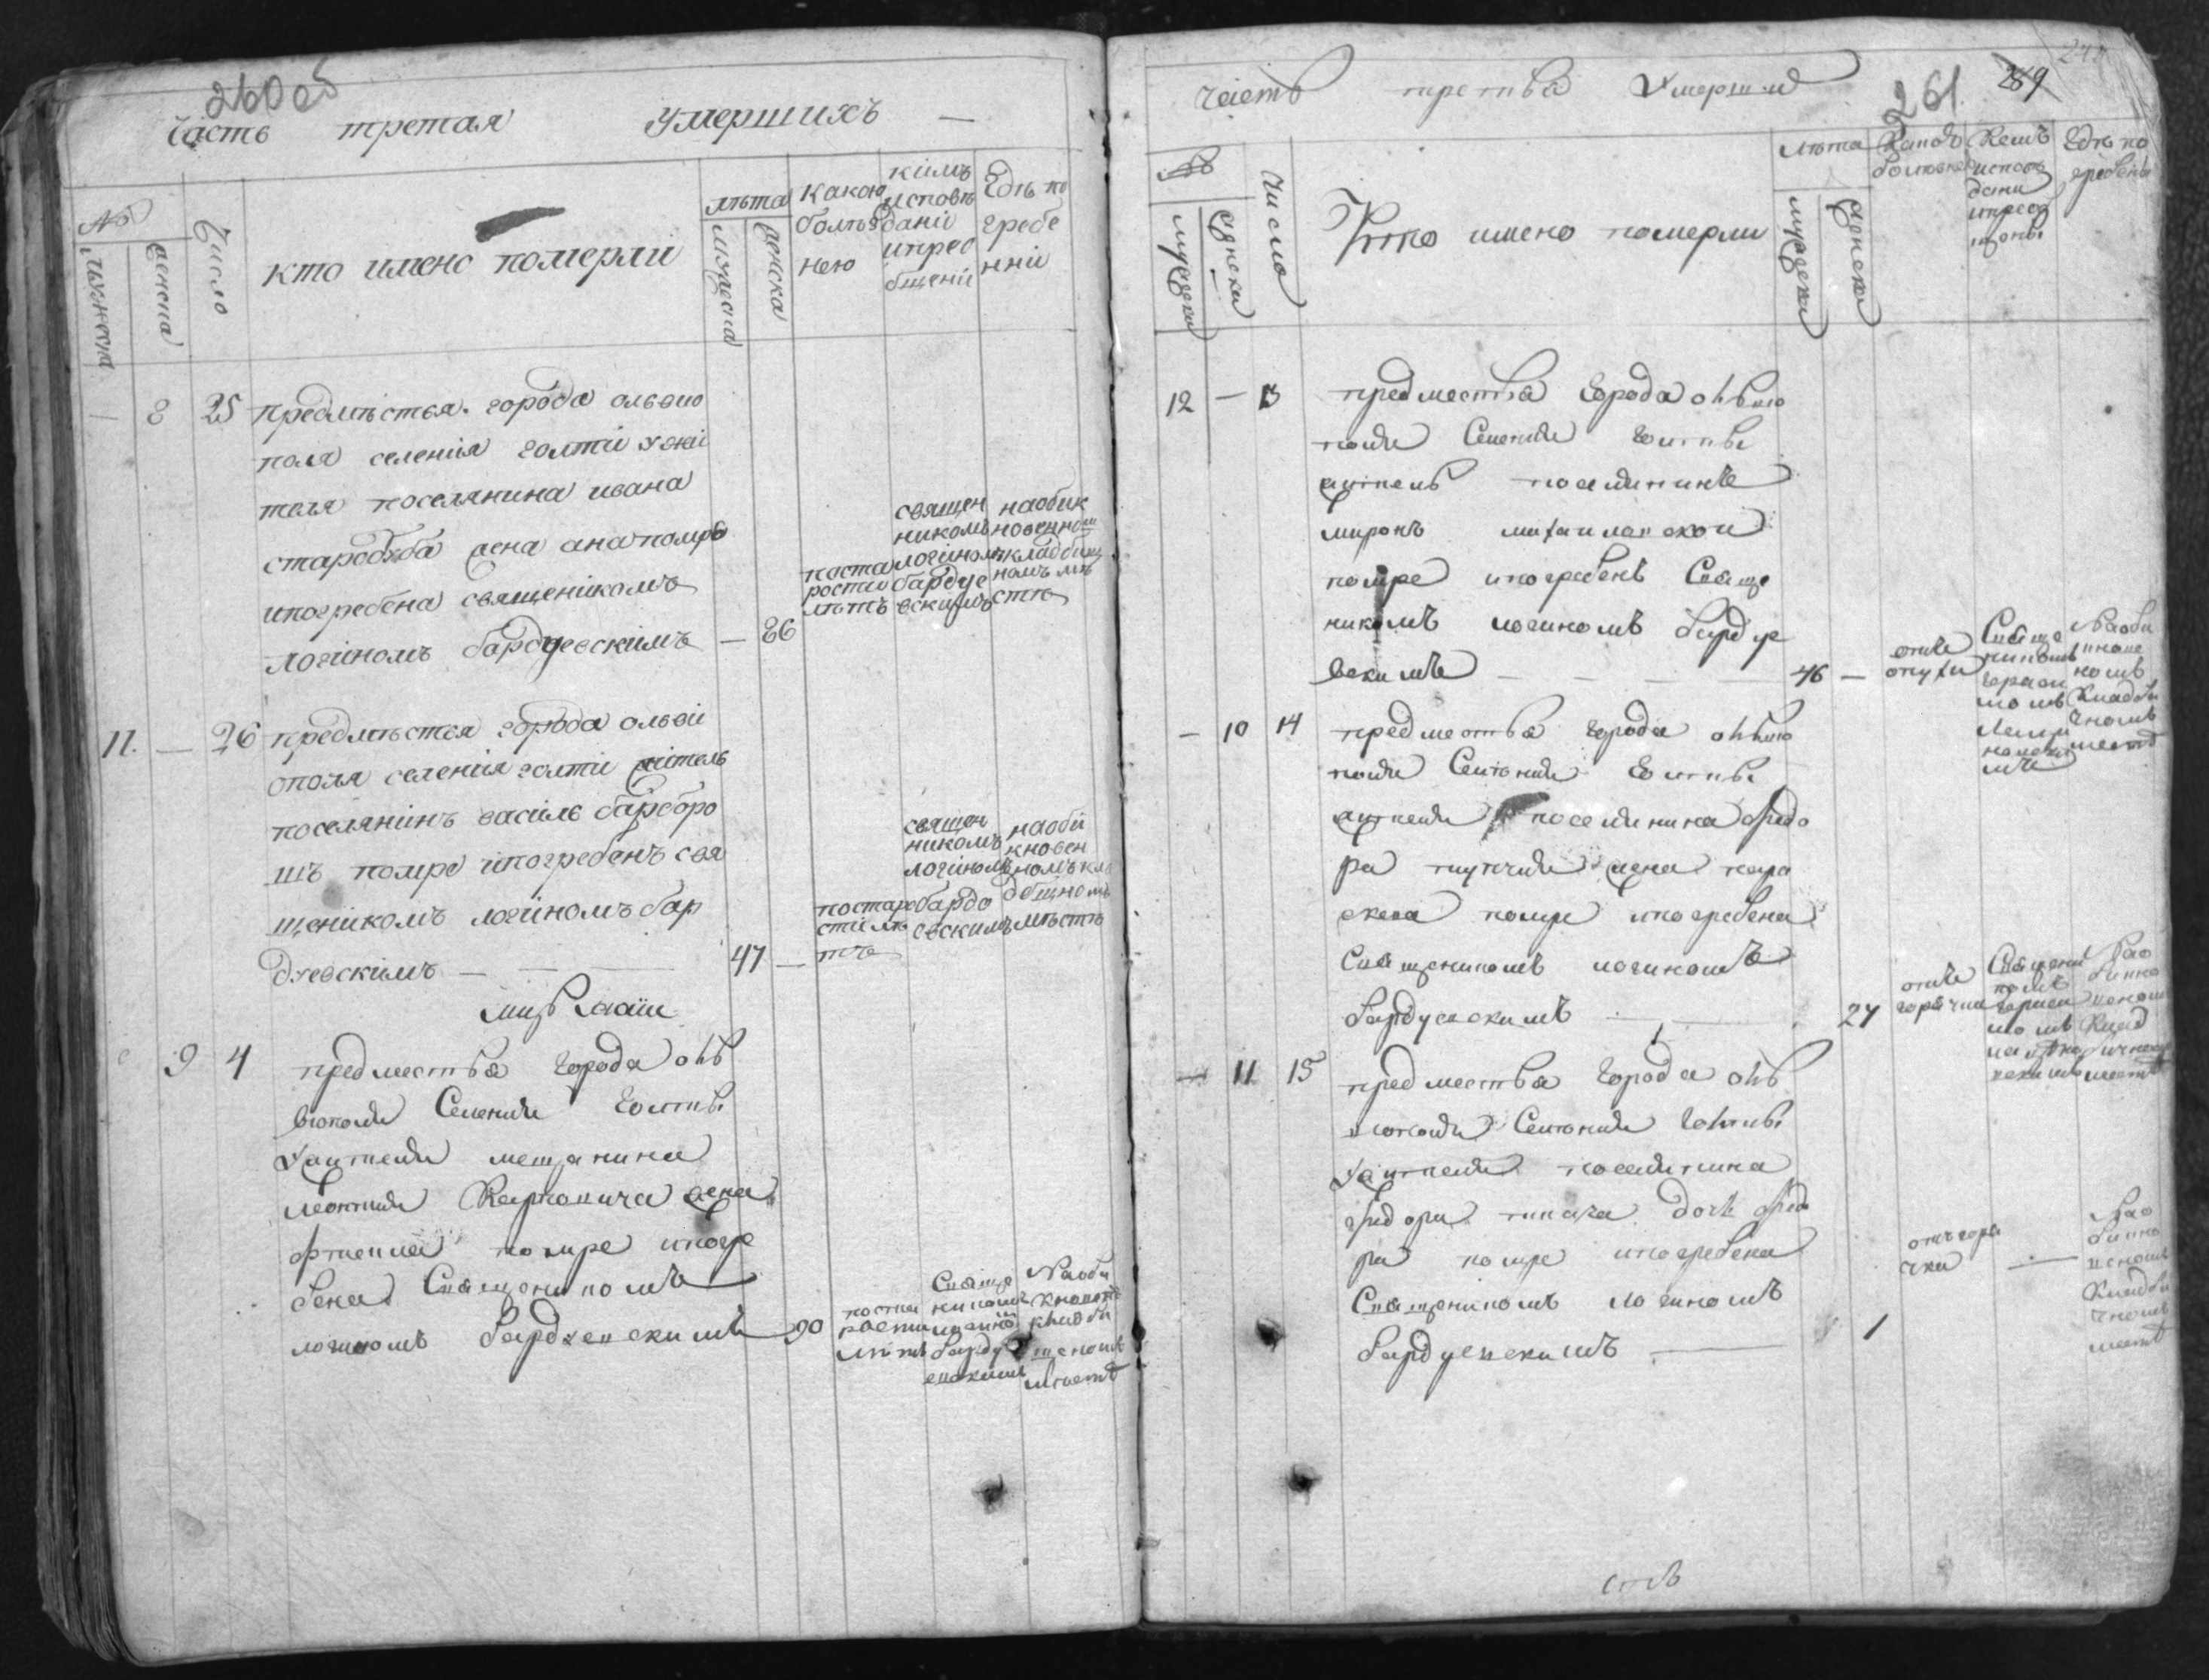 260 об
Часть третая умершихъ —
№
мужеска
женска
Число
кто имено померлй
лѣта
мужеска
женска
какою
болѣз
нею
кѣмъ
исповѣ
данй
ипрео
бщенй
Гдѣ по
гребе
ннй
8 25 предмѣстья города ольвио
поля селенія голтй ужй
теля поселянина ивана
жена анапомре
ипогребена священикомъ
логйномъ бардуевскімъ — 86
постаростйлѣтъ
священ
никомъ
логйномъ
бардуе
вскимъ
наобик
новенном
кладбищ
номъ мѣ
стѣ
11 — 26 предмѣстья города ольвй
ополя селенія голтй жйтель
поселянйнъ василь
шъ помре йпогребенъ свя
щенйкомъ логйномъ бар
дуевскімъ — — 47 —
постаре
стй лѣ
тъ
священ
никомъ
логйномъ
бардо
вскимъ
наобй
кновен
номъ кла
дбищномъ
мѣстѣ
9 4 предместъя города олъ
виополя Селения Голты
ужителя мещанина
леонтия Карповича жена
помре ипогре
бена Священикомъ
логиномъ Бардуевскимъ 90
поста
рости
лѣтъ
Свяще
никомъ
логино
Барду
евскимъ
Наоби
кновено
кладби
щеномъ
мѣсте
261
289
Часть третья Умерши
№
мужеска
женска
Число
Кто имено померли
лѣта
мужеска
женска
Какою
болѣзне
Кемъ
испов
дани
ипрео
щены
Гдѣ по
гребены
12 — 13 предместья Города олвио
поля Селения Голты
житель поселянинъ
миронъ
помре ипогребенъ Свяще
никомъ логиномъ Бардуе
вскимъ — — — 46 —
отъ
опухи
Свяще
никомъ
Гераси
момъ
Наоби
кновеномъ
Кладби
чномъ
месте
— 10 14 предместья Города олвио
поля Селения Голты
жителя поселянина федо
ра жена пара
скева помре ипогребена
Священикомъ логиномъ
Бардуевскимъ — — 27
отъ
горячки
Священи
комъ
Гераси
момъ
Нао
бикно
веномъ
Клад
бичном
месте
— 11 15 предместья Города олъ
виополя Селения Голты
ужителя поселянина
федора дочь федо
ра помре ипогребена
Священикомъ логиномъ
Бардуевскимъ — 1
отъ горя
чки
—
Нао
бикно
веномъ
Кладби
чномъ
месте